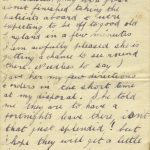 just finished taking the
patients aboard & were
expecting to be off to good old
England in a few minutes
I am awfully pleased she is
getting a chance to see around
there. Needless to say I
gave her my few directions
& orders in the short time
at my disposal. He told
me they are to have a
fortnights leave there. Isnt
that just splendid! but
I hope they will get a little